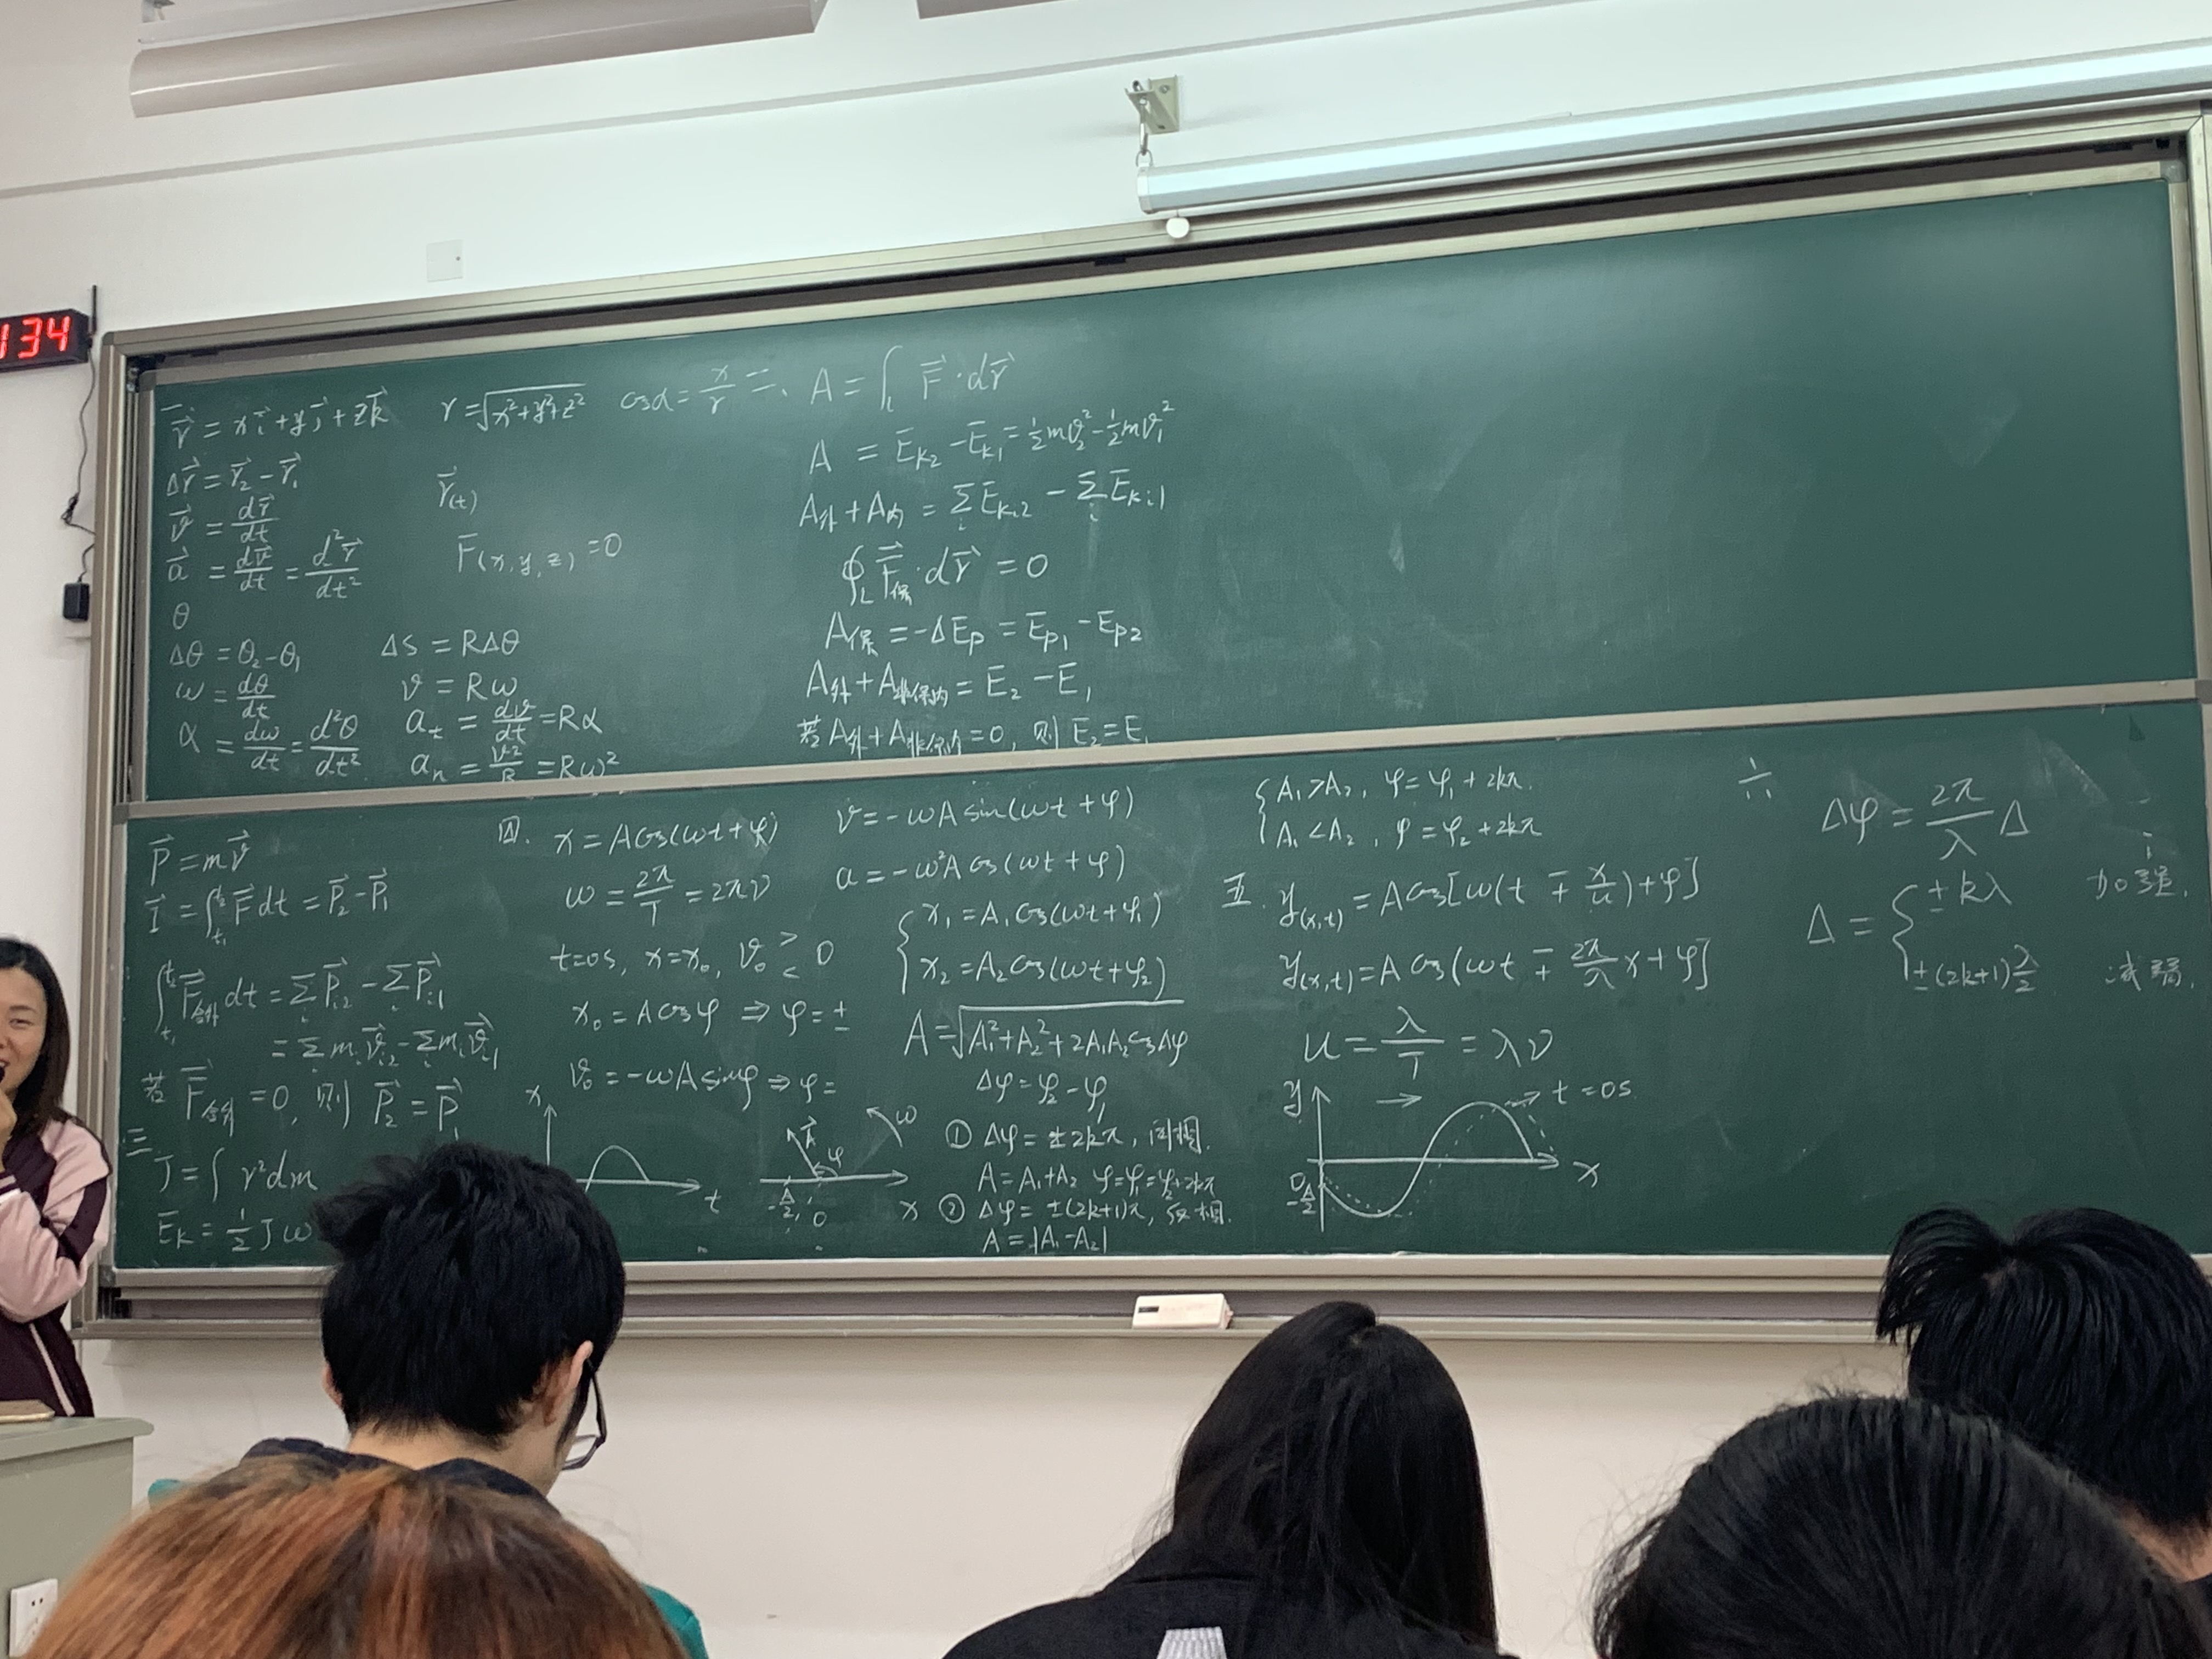 134
一
r⃗ = xi⃗+yj⃗+zk⃗ r=√(x²+y²+z²) cosα=x/r
Δr⃗ = r⃗₂-r⃗₁
r⃗(t)
v⃗ = dr⃗/dt
F(x,y,z)=0
a⃗ = dv⃗/dt = d²r⃗/dt²
θ
Δθ = θ₂-θ₁ ΔS = RΔθ
ω = dθ/dt v = Rω
α = dω/dt = d²θ/dt² a_t = dv/dt = Rα
a_n = v²/R = Rω²
二、 A = ∫_L F⃗·dr⃗
A = E_k2 - E_k1 = ½mv₂² - ½mv₁²
A外+A内 = Σ_i E_ki2 - Σ_i E_ki1
∮_L F⃗保·dr⃗ = 0
A保 = -ΔE_p = E_p1 - E_p2
A外+A非保内 = E₂ - E₁
若A外+A非保内=0, 则E₂=E₁
P⃗ = mv⃗
I⃗ = ∫_t₁^t₂ F⃗dt = P⃗₂-P⃗₁
∫_t₁^t₂ F⃗合外 dt = Σ_i P⃗_i2 - Σ_i P⃗_i1
= Σ_i m_i v⃗_i2 - Σ_i m_i v⃗_i1
若 F⃗合外 = 0, 则 P⃗₂ = P⃗₁
三
J = ∫ r²dm
E_k = ½Jω
四. x = Acos(ωt+φ) v = -ωA sin(ωt+φ)
ω = 2π/T = 2πν a = -ω²A cos(ωt+φ)
t=0s, x=x₀, v₀ ≷ 0
x₀ = Acosφ ⇒ φ = ±
v₀ = -ωA sinφ ⇒ φ =
x t
A⃗ φ ω
-A/2 0 x
{ x₁ = A₁cos(ωt+φ₁)
x₂ = A₂cos(ωt+φ₂)
A = √(A₁²+A₂²+2A₁A₂cosΔφ)
Δφ = φ₂-φ₁
① Δφ = ±2kπ, 同相.
A = A₁+A₂ φ=φ₁=φ₂+2kπ
② Δφ = ±(2k+1)π, 反相.
A = |A₁-A₂|
{ A₁>A₂, φ = φ₁+2kπ.
A₁<A₂, φ = φ₂+2kπ
五. y(x,t) = Acos[ω(t ∓ x/u)+φ]
y(x,t) = A cos(ωt ∓ 2π/λ x+φ]
u = λ/T = λν
y → t=0s
0 x
-A/2
六 Δφ = 2π/λ Δ
Δ = { ±kλ 加强.
±(2k+1)λ/2 减弱.